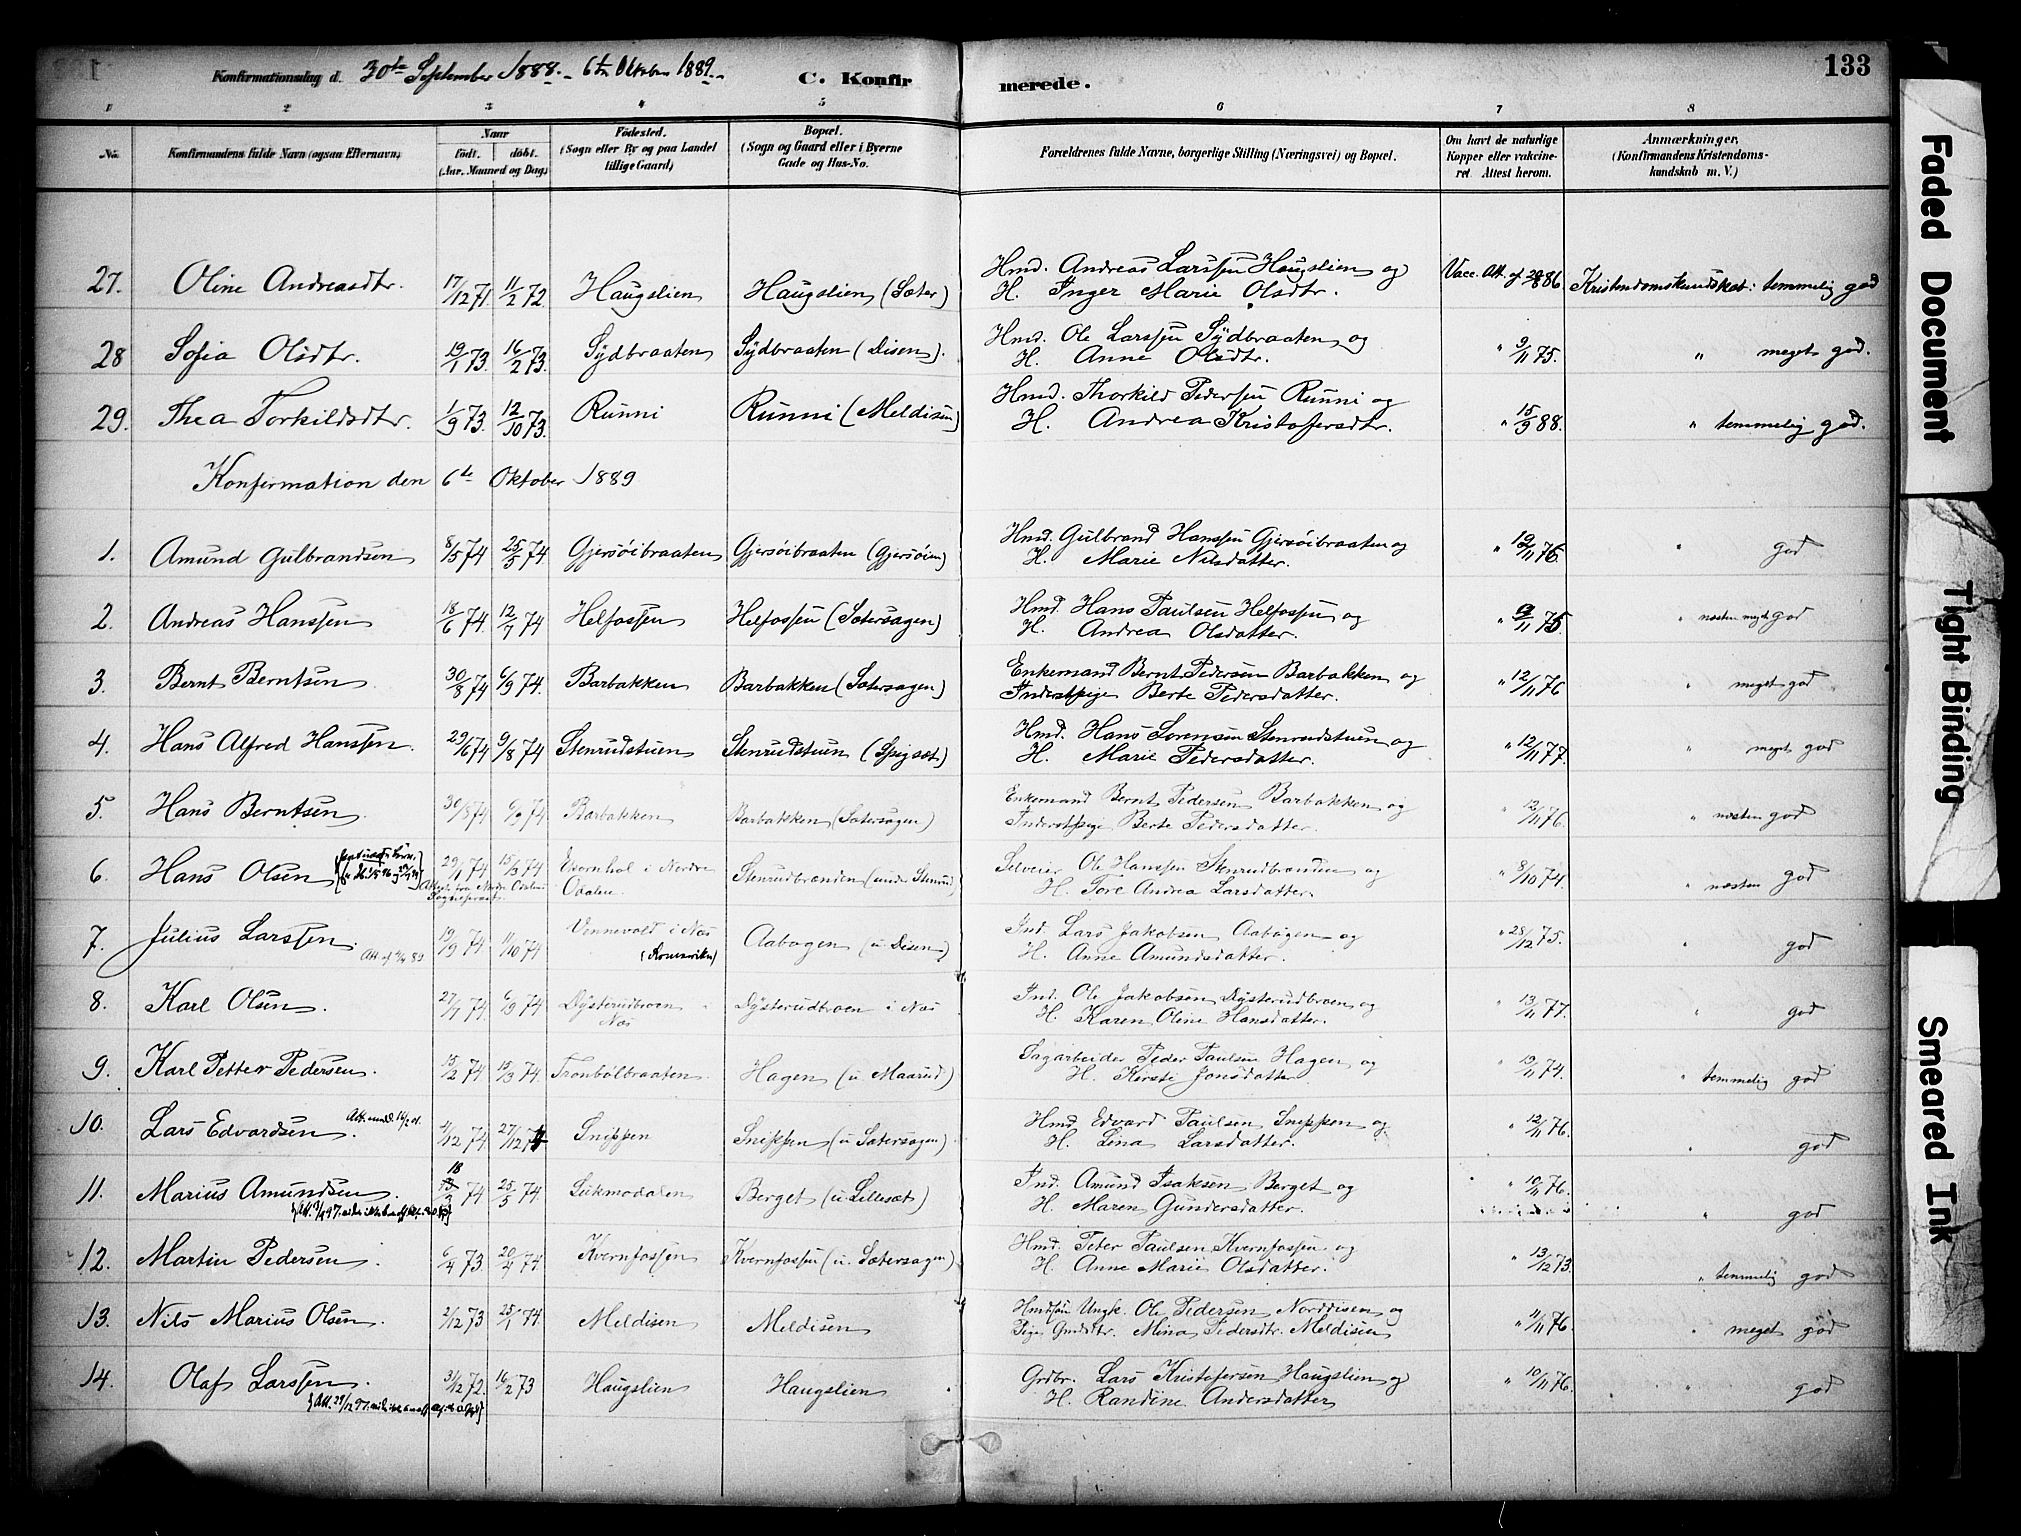 133
Konfirmationsdag d. 30te September 1888. – 6te Oktober 1889.
C. Konfirmerede.
1 2 3 4 5 6 7 8
No. Konfirmandens fulde Navn (ogsaa Efternavn) Naar Født. døbt. (Aar, Maaned og Dag) Fødested. (Sogn eller By og paa Landet tillige Gaard) Bopæl. (Sogn og Gaard eller i Byerne Gade og Hus-No. Forældrenes fulde Navne, borgerlige Stilling (Næringsvei) og Bopæl. Om havt de naturlige Kopper eller vakcineret. Attest herom. Anmærkninger. (Konfirmandens Kristendomskundskab m. V.)
27. Oline Andreasdtr. 17/12 71 11/2 72 Haugslien Haugslien (Sæter) Hmd. Andreas Larssen Haugslien og Vacc. Att. af 86 Kristendomskundskab: temmelig god
H. Inger Marie Olsdtr.
28 Sofia Olsdtr. 19/1 73. 16/2 73. Sydbraaten Sydbraaten (Disen). Hmd. Ole Larssen Sydbraaten og " 9/11 75. " meget god.
H. Anne Olsdtr.
29. Thea Torkildsdtr. 1/9 73. 12/10 73. Runni Runni (Meldisen) Hmd. Thorkild Pedersen Runni og " 15/9 88. " temmelig god.
H. Andrea Kristofersdtr.
Konfirmation den 6te Oktober 1889
1. Amund Gulbrandsen 8/5 74 25/5 74 Gjersøibraaten Gjersøibraaten (Gjersøien) Hmd. Gulbrand Hanssen Gjersøibraaten og " 76. " god
H. Marie Nilsdatter.
2. Andreas Hanssen 18/6 74. 12/7 74 Helfossen Helfossen (Sætersagen) Hmd. Hans Paulsen Helfossen og " 9/11 75 " næsten meget god
H. Andrea Olsdatter.
3. Bernt Berntsen 30/8 74 6/9 74. Barbakken Barbakken (Sætersagen) Enkemand Bernt Pedersen Barbakken og " 12/11 76 " meget god
Inderstpige Berte Pedersdatter.
4. Hans Alfred Hanssen. 29/6 74 9/8 74 Stenrudstuen Stenrudstuen (Spigset) Hmd. Hans Sørensen Stenrudstuen og " 12/11 77. " meget god
H. Marie Pedersdatter.
5. Hans Berntsen. 30/8 74 6/9 74 Barbakken Barbakken (Sætersagen) Enkemand Bernt Pedersen Barbakken og " 12/11 76. " næsten god
Inderstpige Berte Pedersdatter.
6. Hans Olsen 29/1 74 15/3 74 i Nordre Odalen Stenrudbrænden (under Stenrud) Selveier Ole Hanssen Stenrudbrænden og " 8/10 74. " næsten god
H. Tore Andrea Larsdatter.
7. Julius Larssen. 19/9 74 11/10 74 Vennevold i Næs (Romerike) Aabogen (u. Disen) Ind. Lars Jakobsen Aabogen og " 28/12 75. " god
H. Anne Amundsdatter.
8. Karl Olsen. 27/7 74. 6/9 74 Dysterudbroen Næs Dysterudbroen i Næs Ind. Ole Jakobsen Dysterudbroen og " 13/11 77. " god
H. Karen Oline Hansdatter.
9. Karl Petter Pedersen. 15/2 74 15/3 74. Trønbølbraaten Hagen (u. Maarud) Sagarbeider Peder Paulsen Hagen og " 13/11 74. " temmelig god
H. Kersti Jonsdatter
10. Lars Edvardsen. 12 74 27/12 74 Snippen Snippen (u Sætersagen) Hmd Edvard Paulsen Snippen og " 12/11 76. " god
H. Lina Larsdatter.
11. Marius Amundsen. 18/3 74 25/5 74. Lukmodalen Berget (u. Lillesæt) Ind. Amund Isaksen Berget og " 10/11 76. " god
H. Maren Gundersdatter.
12. Martin Pedersen 6/4 73 20/4 74 Kvernfossen Kvernfossen (u. Sætersagen) Hmd. Peter Paulsen Kvernfossen og " 13/12 73. " temmelig god
H. Anne Marie Olsdatter.
13. Nils Marius Olsen. 2/12 73 25/1 74. Meldisen Meldisen Hmdsøn Ungk. Ole Pedersen Norddisen og " 11/11 76. " meget god
Pige Gmdsdtr. Mina Pedersdtr. Meldisen
14. Olaf Larssen. 31/12 72. 16/2 73 Haugslien Haugslien Grdbr. Lars Kristofersen Haugslien og " 10/11 76. " god
H. Randine Andersdatter
Faded Document
Tight Binding
Smeared Ink